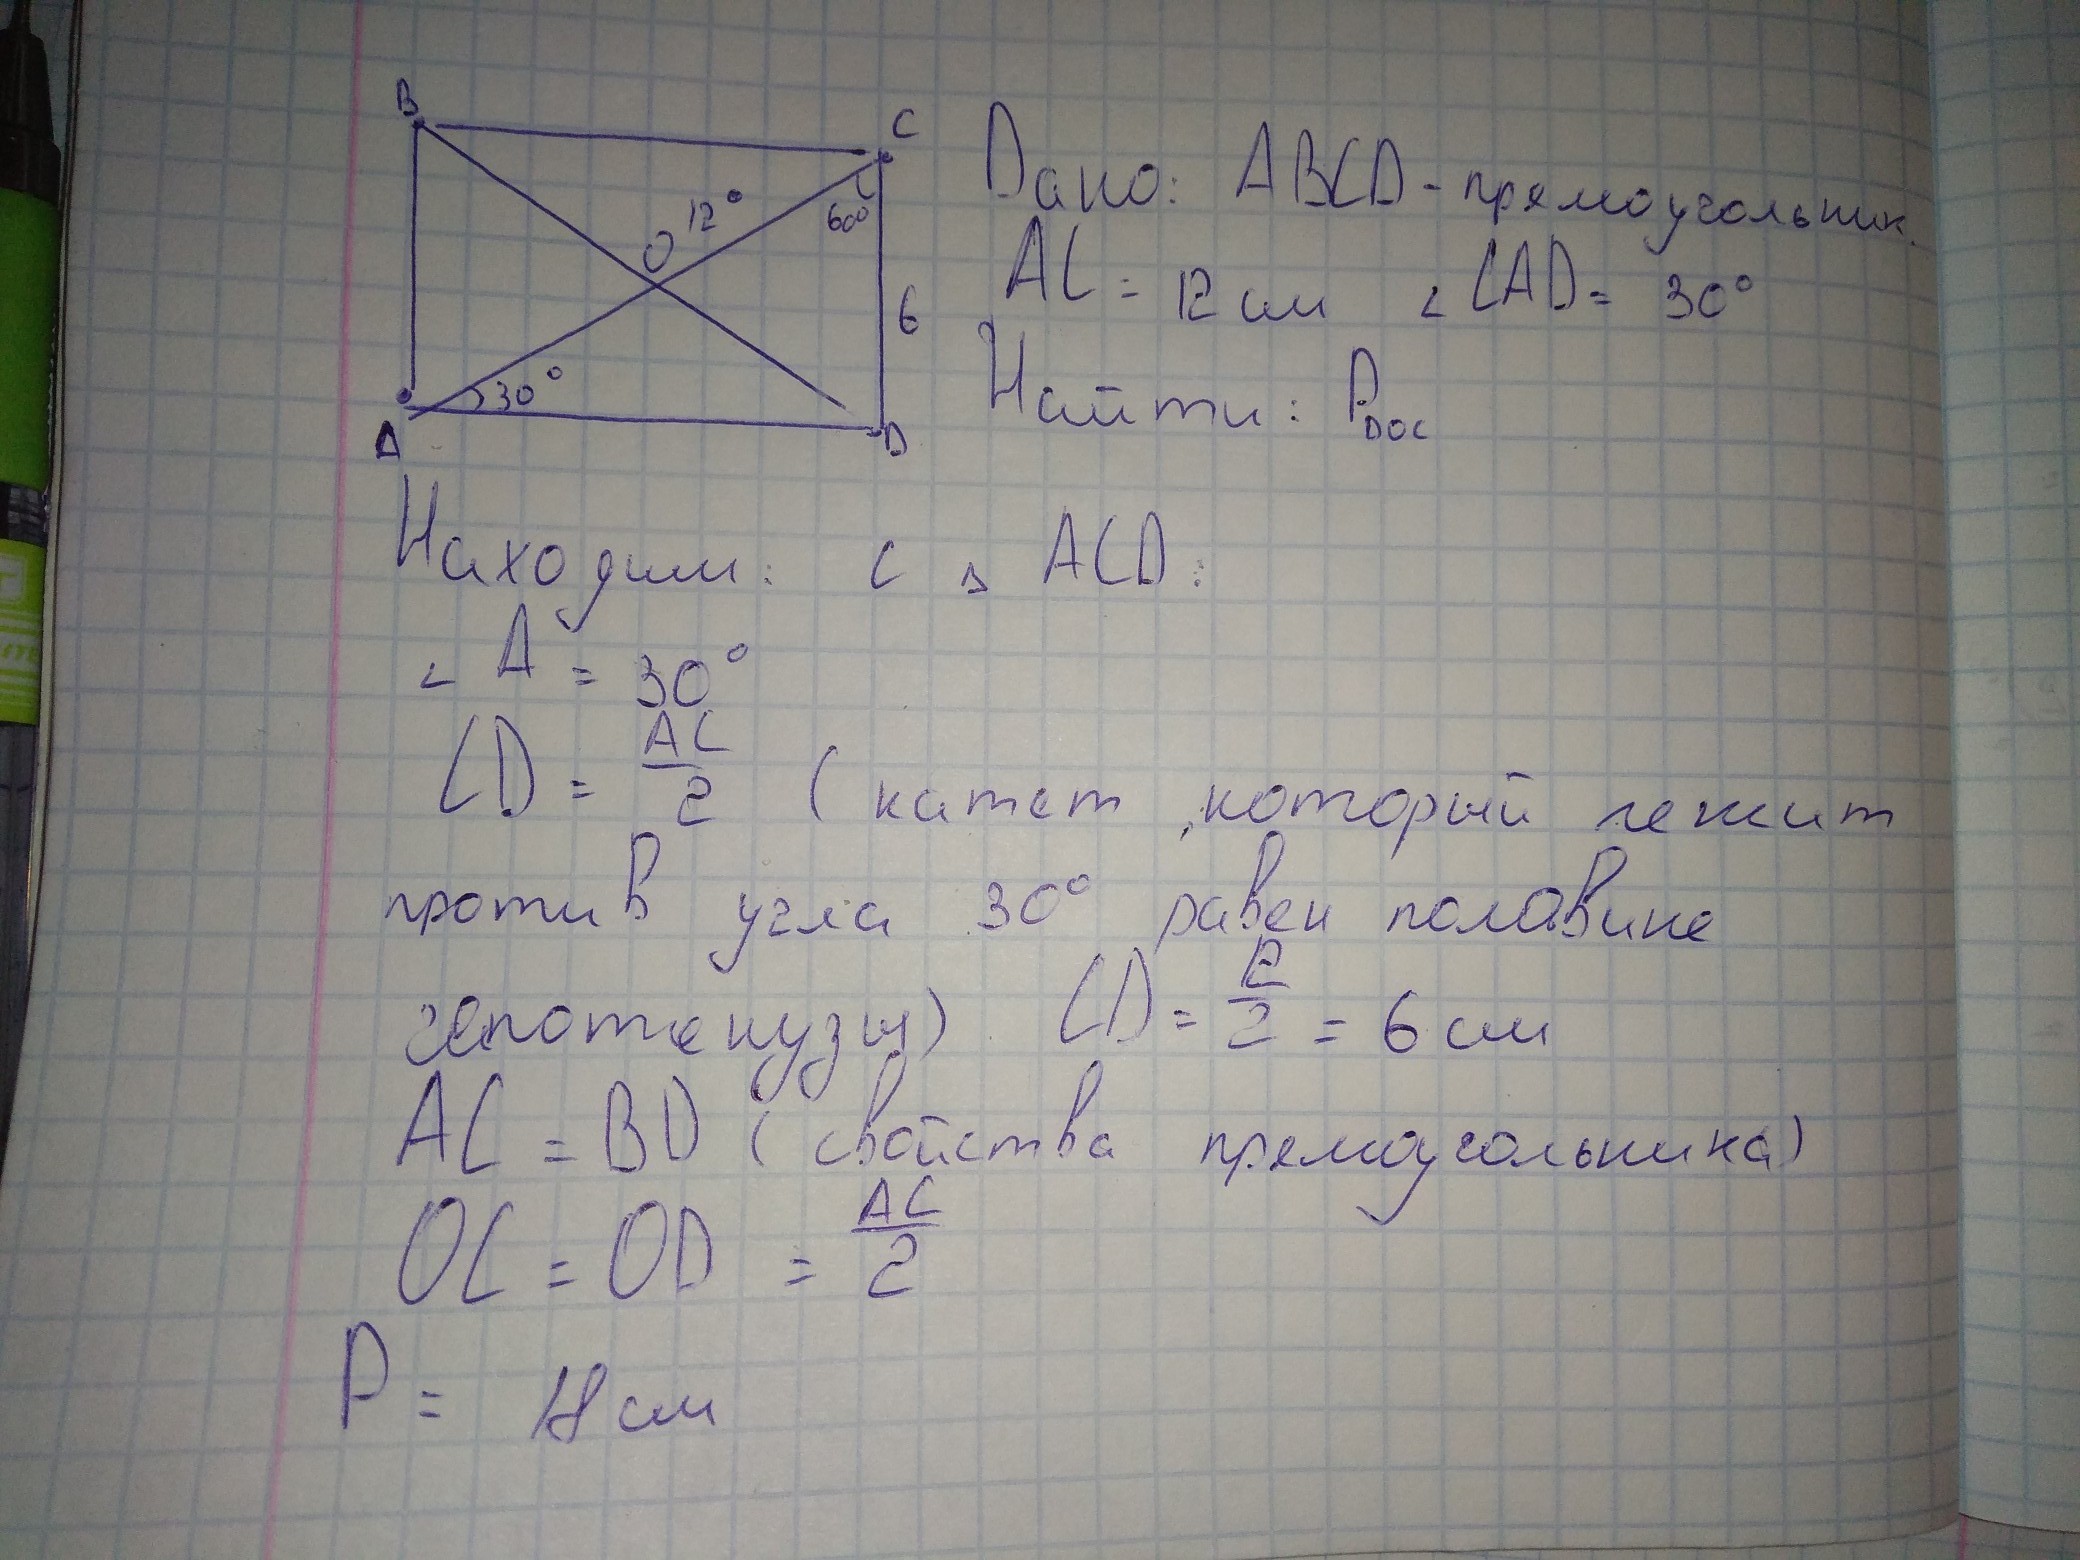 B
C
12°
O
60°
6
30°
A
D
Дано: ABCD - прямоугольник.
AC = 12 см ∠CAD = 30°
Найти: P DOC
Находим: С в ACD:
∠ A = 30°
CD = AC/2 (катет, который лежит
против угла 30° равен половине
гепотенузы) CD = 12/2 = 6 см
AC = BD (свойства прямоугольника)
OC = OD = AC/2
P = 18 см